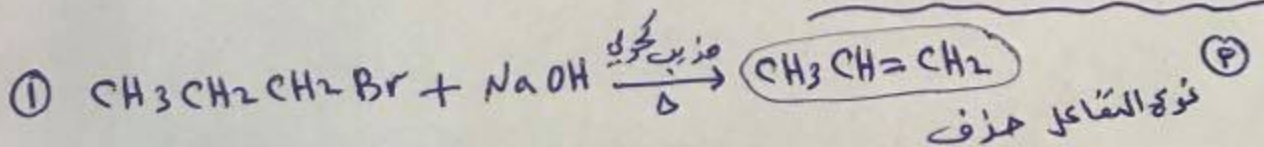 ① CH3CH2CH2Br + NaOH مذيب كحولي Δ → CH3CH=CH2 ②
نوع التفاعل حذف